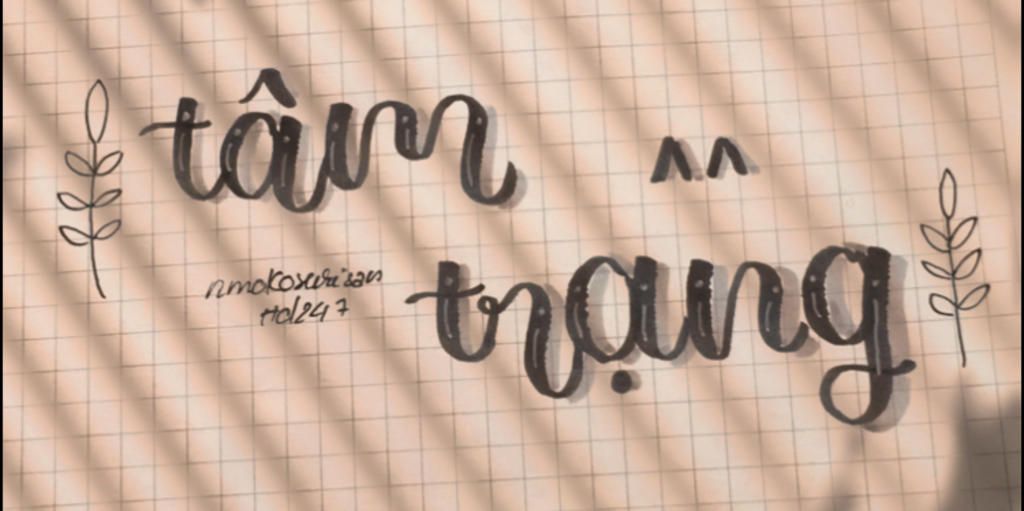 tâm
^^
trạng
nmokosurisan
Hd247